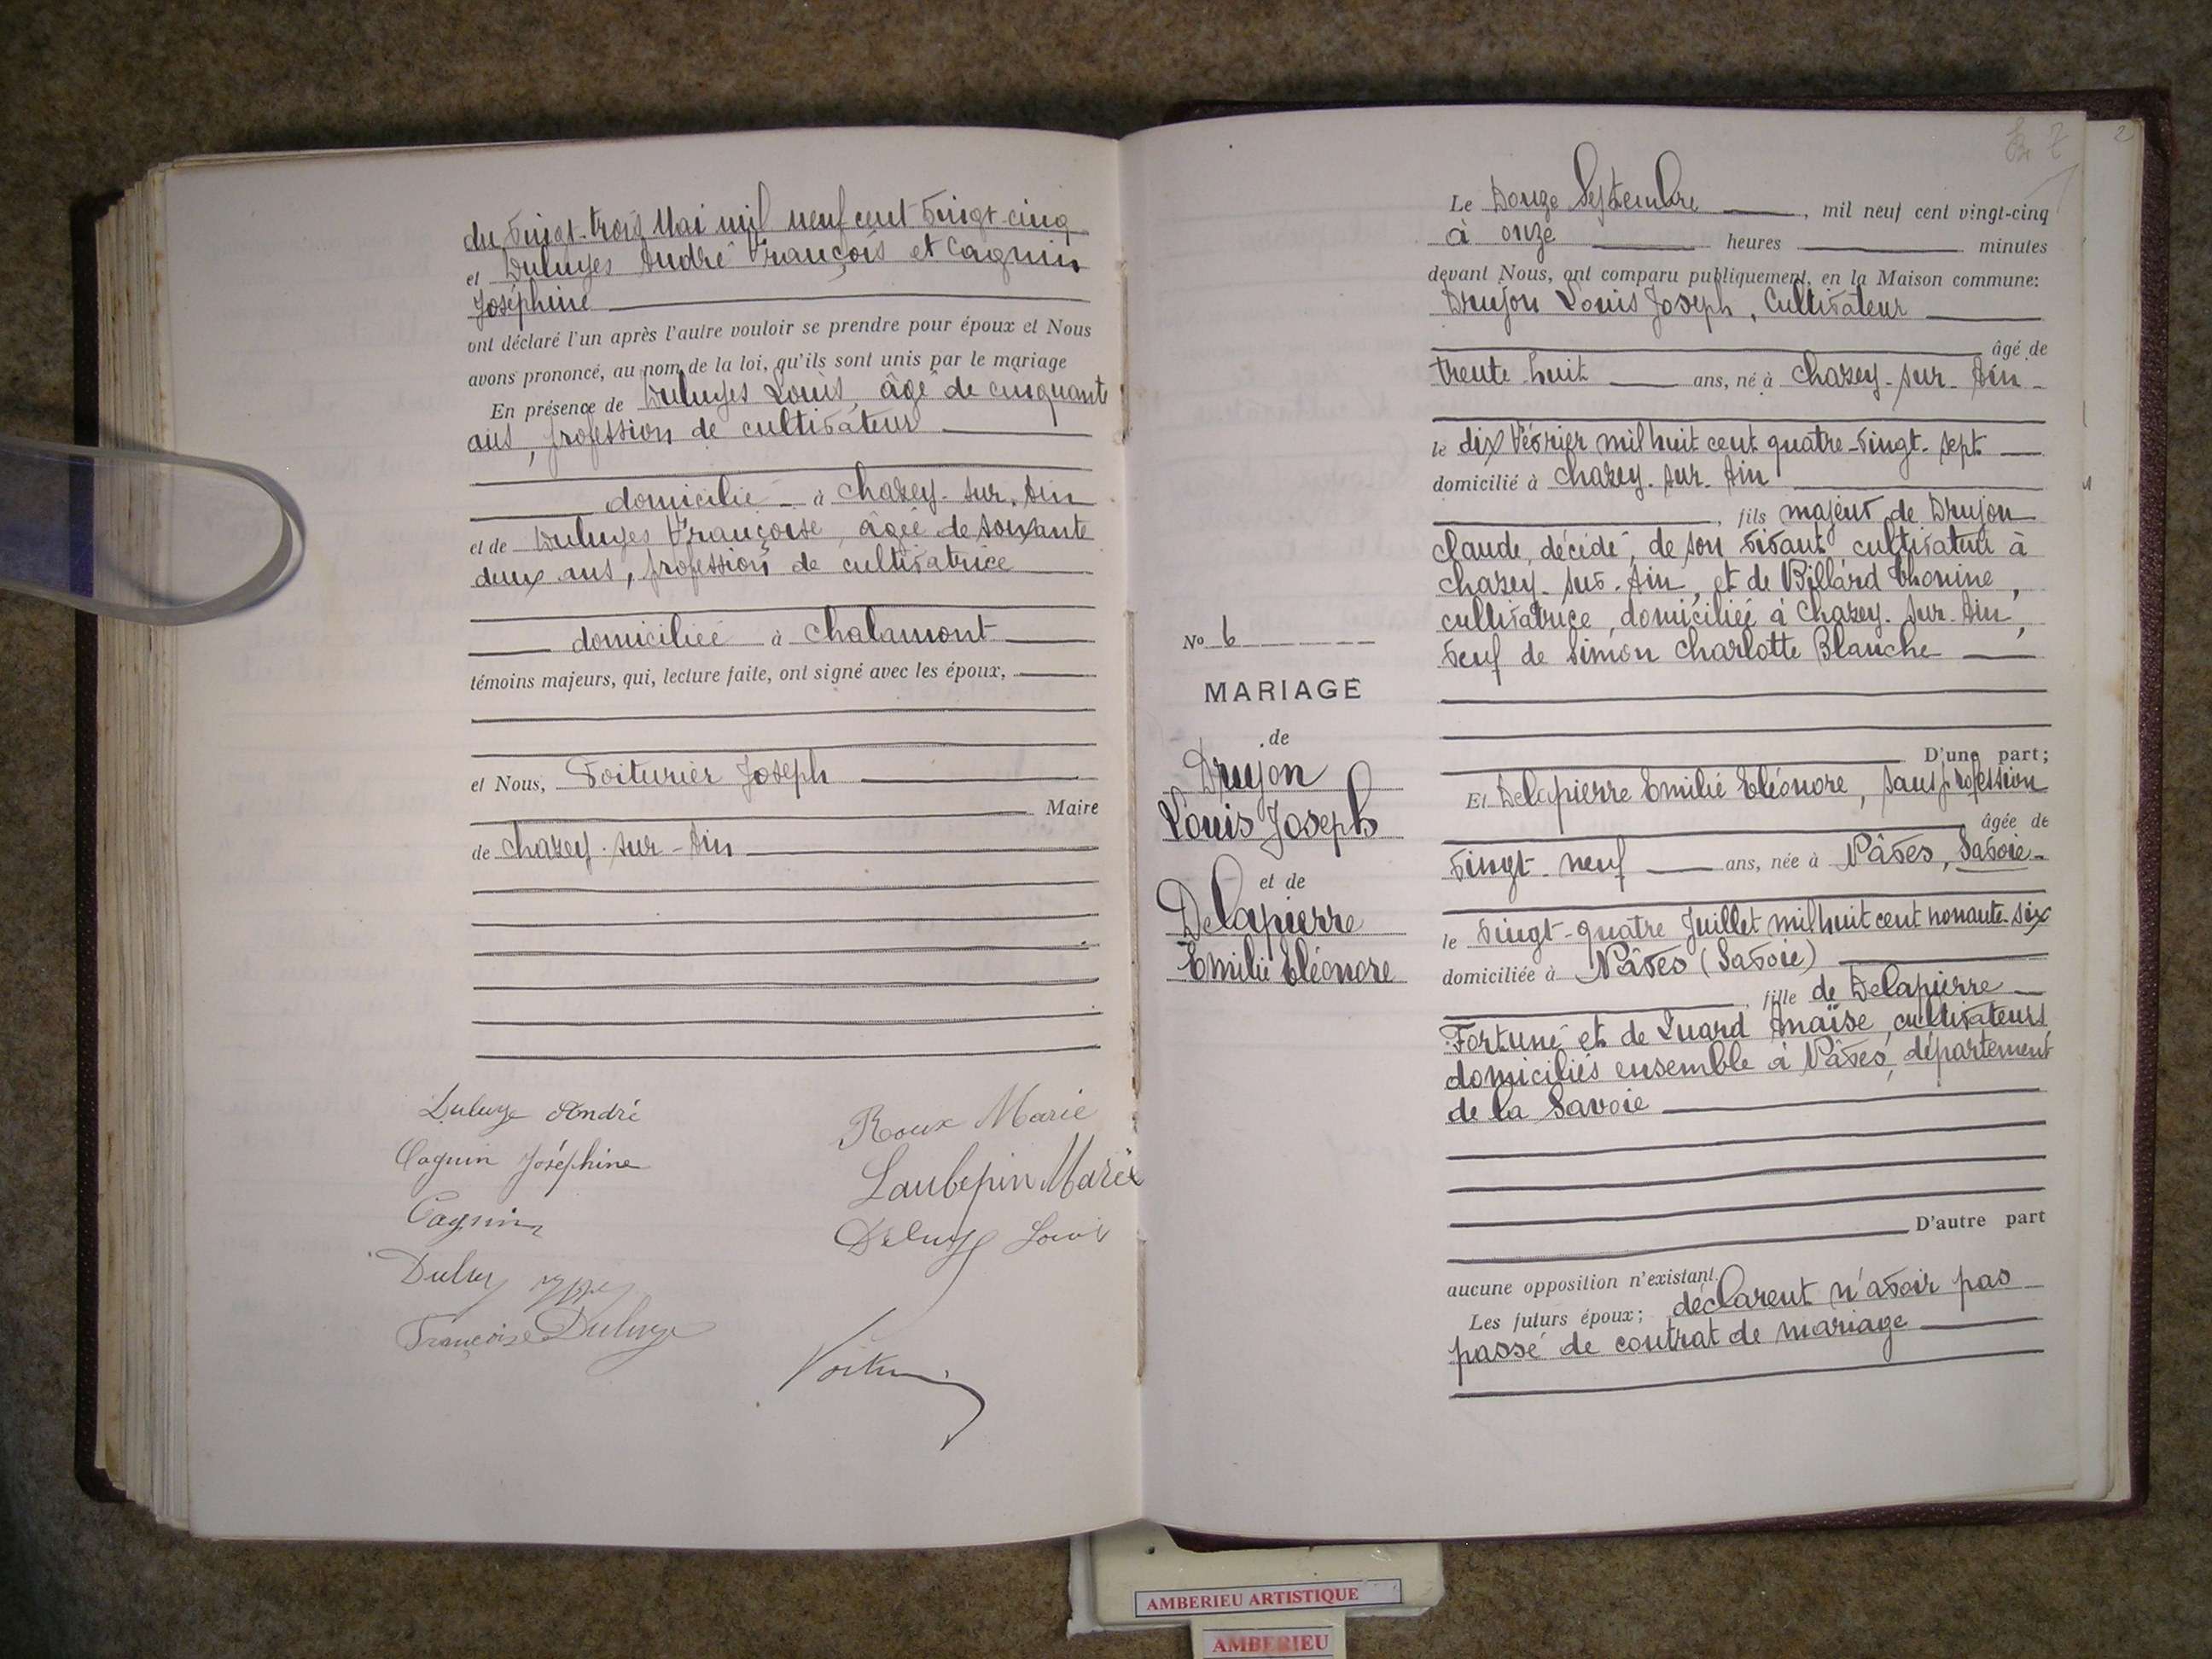 du Vingt-trois Mai mil neuf cent vingt-cinq
et Duluyes André François et Cagnin
Joséphine
ont déclaré l'un après l'autre vouloir se prendre pour époux et Nous
avons prononcé, au nom de la loi, qu'ils sont unis par le mariage
En présence de Duluyes Louis, âgé de cinquante
ans, profession de cultivateur
domicilié à Chazey-sur-Ain
et de Duluyes Françoise, âgée de soixante
deux ans, profession de cultivatrice
domiciliée à Chalamont
témoins majeurs, qui, lecture faite, ont signé avec les époux,
et Nous, Voiturier Joseph
Maire
de Chazey-sur-Ain
Duluye André
Cagnin Joséphine
Cagnin
Françoise Duluye
Roux Marie
Laubepin Marie
Louis
Le Douze Septembre, mil neuf cent vingt-cinq
à onze heures minutes
devant Nous, ont comparu publiquement, en la Maison commune:
Drujon Louis Joseph, Cultivateur
âgé de
trente huit ans, né à Chazey-sur-Ain
le dix Février mil huit cent quatre-vingt-sept
domicilié à Chazey-sur-Ain
, fils majeur de Drujon
Claude, décédé, de son vivant cultivateur à
Chazey-sur-Ain, et de Billard Thonine,
cultivatrice, domiciliée à Chazey-sur-Ain,
veuf de Simon Charlotte Blanche
D'une part;
Et Delapierre Emilie Eléonore, sans profession
âgée de
vingt-neuf ans, née à Nâves, Savoie
le vingt-quatre Juillet mil huit cent nonante-six
domiciliée à Nâves (Savoie)
, fille de Delapierre
Fortuné et de Luard Anaïse, cultivateurs
domiciliés ensemble à Nâves, département
de la Savoie
D'autre part
aucune opposition n'existant.
Les futurs époux; déclarent n'avoir pas
passé de contrat de mariage
No 6
MARIAGE
de
Drujon
Louis Joseph
et de
Delapierre
Emilie Eléonore
AMBERIEU ARTISTIQUE
AMBERIEU